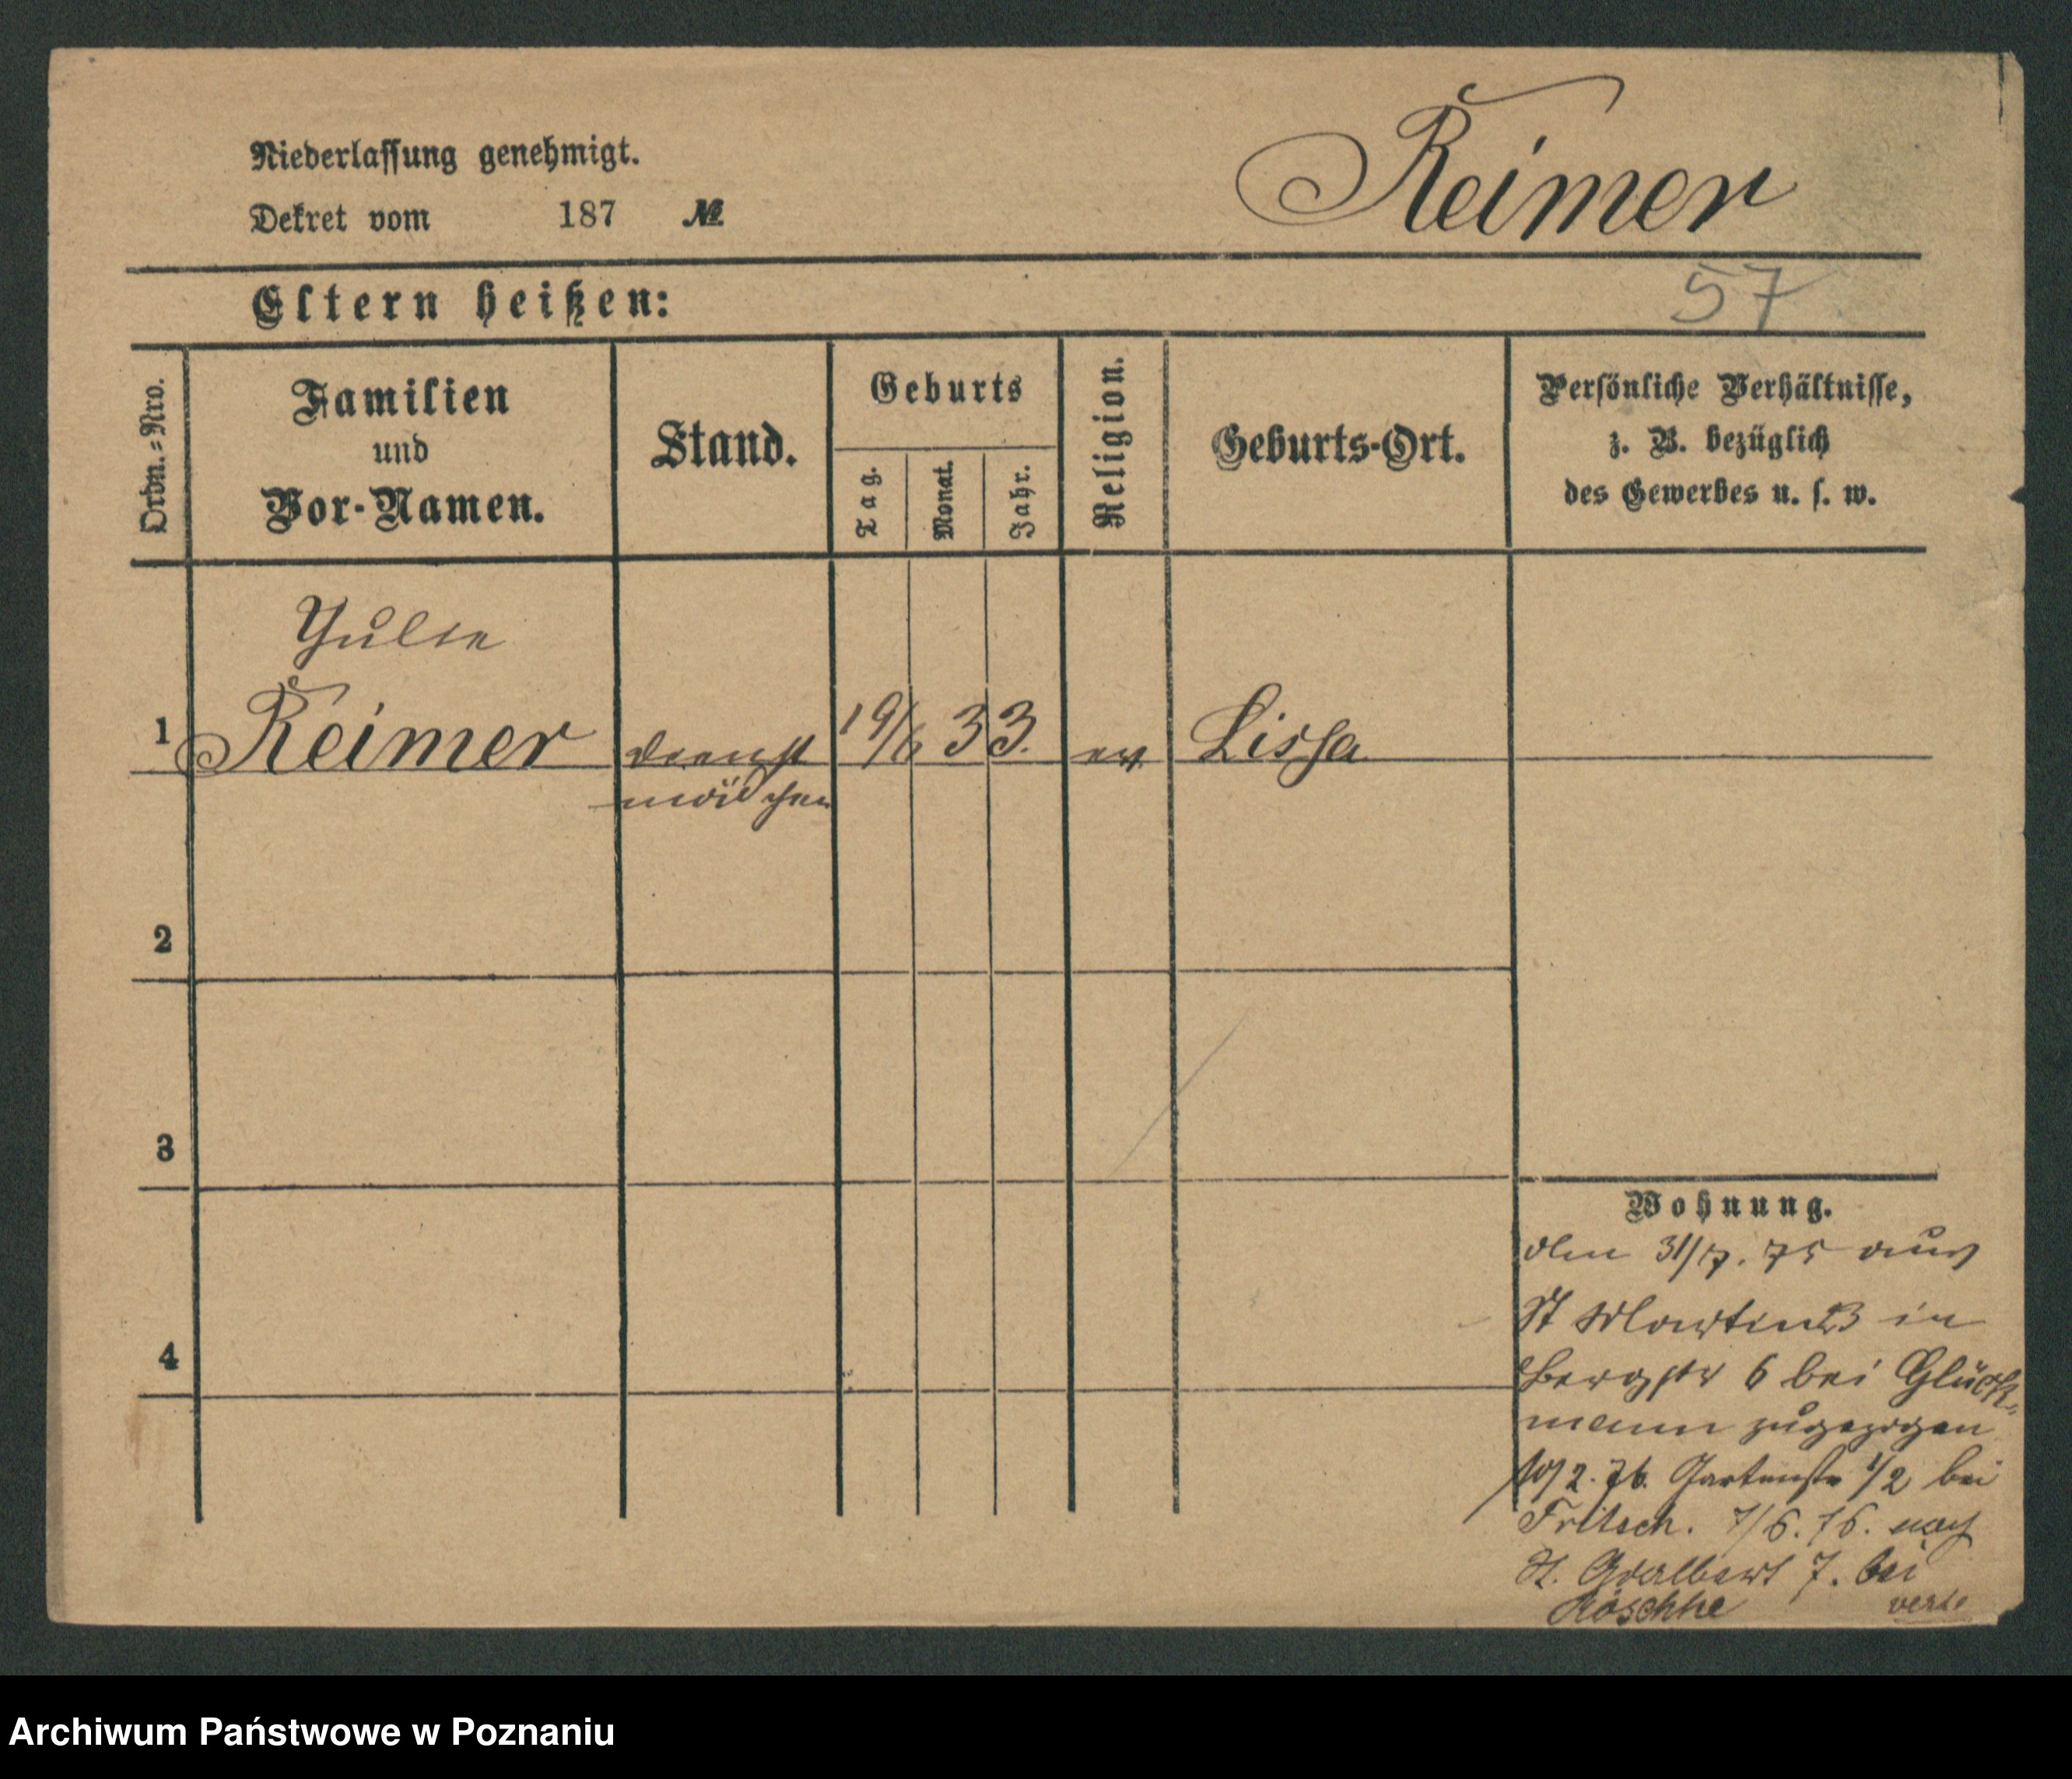 Reimer
Niederlassung genehmigt.
Dekret vom 187 №
57
Eltern heißen:
Ordn.=Nro.
Familien
und
Vor-Namen.
Stand.
Geburts
Tag.
Monat.
Jahr.
Religion.
Geburts-Ort.
Persönliche Verhältnisse,
z. B. bezüglich
des Gewerbes u. s. w.
Julie
1 Reimer dienst 19/6 33. ev. Lissa
mädchen
2
3
4
Wohnung.
den 31/7. 75 aus
St Martin 23 in
Bergstr 6 bei Glück-
mann zugezogen
10/2. 76. Gartenstr 1/2 bei
Fritsch. 7/6. 76. nach
St. Adalbert 7. bei
Röschke verte
Archiwum Państwowe w Poznaniu